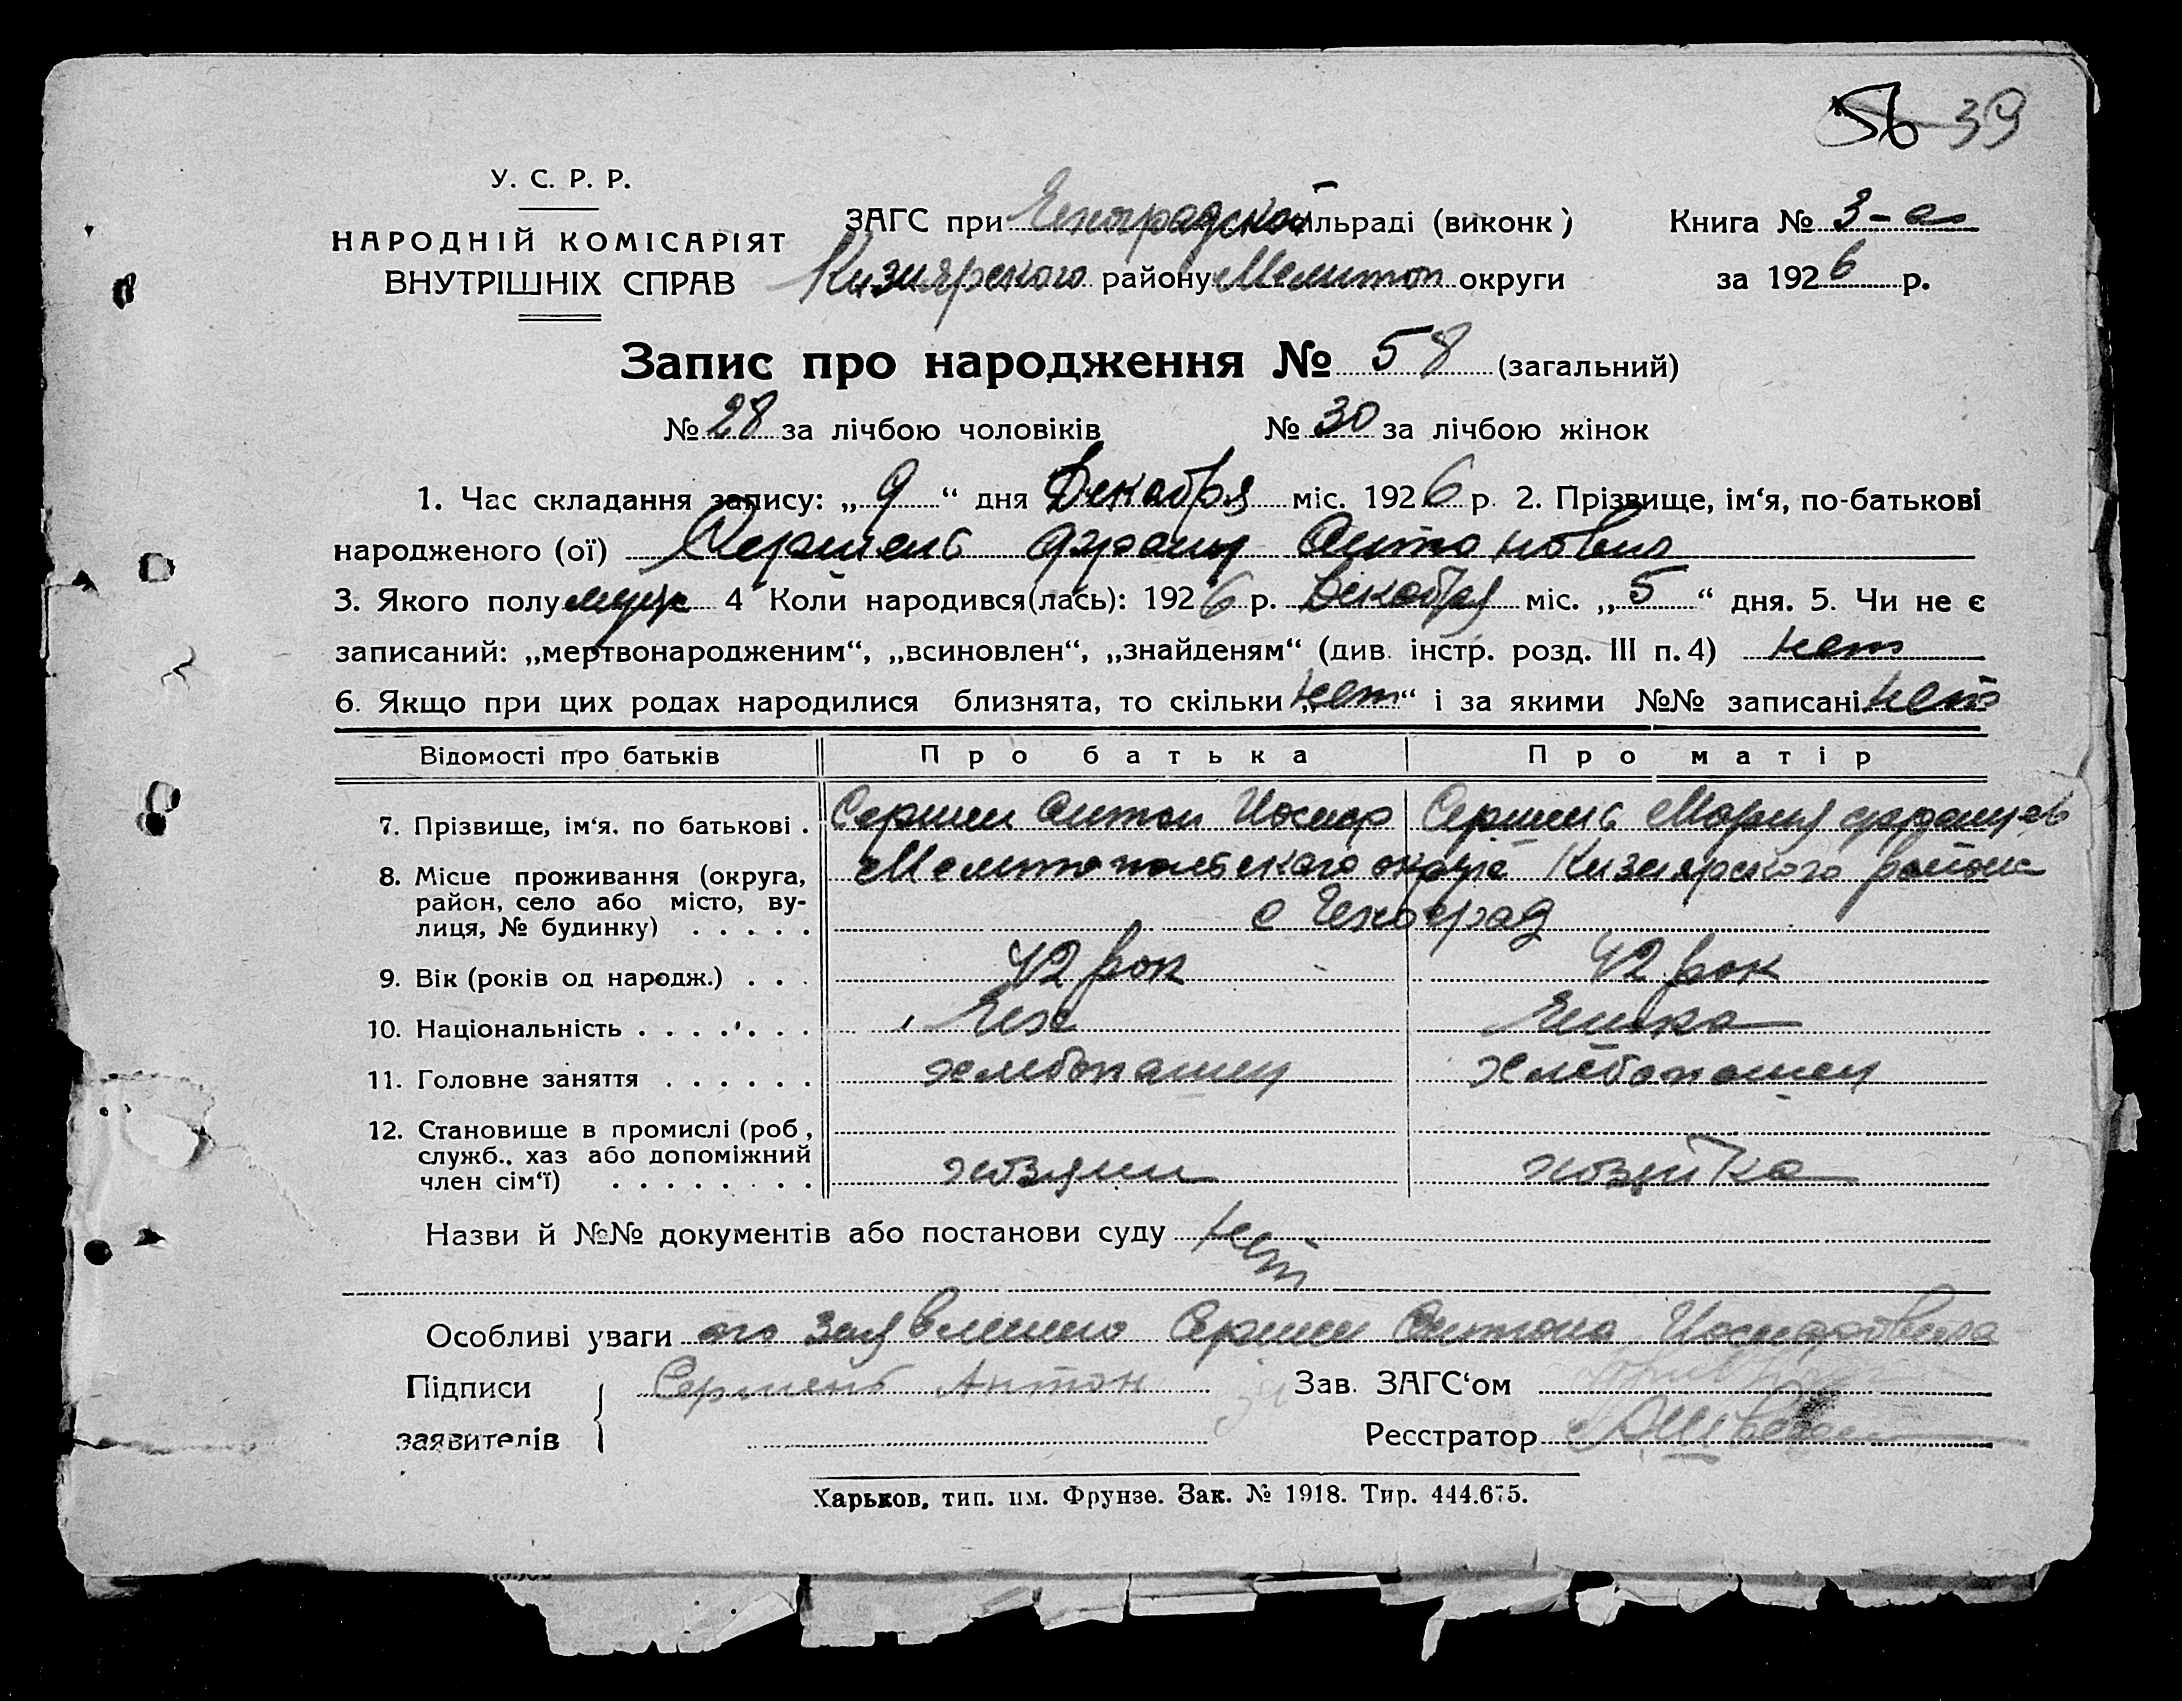 56 39
У. С. Р. Р.
НАРОДНІЙ КОМІСАРІЯТ
ВНУТРІШНІХ СПРАВ
ЗАГС при Чехоградской сільраді (виконк)
Кизиярского району Мелитоп округи
Книга № 3-а
за 1926 р.
Запис про народження № 58 (загальний)
№ 28 за лічбою чоловіків № 30 за лічбою жінок
1. Час складання запису: „9“ дня Декабря міс. 1926 р. 2. Прізвище, ім‘я, по-батькові
народженого (ої) Франц Антонович
3. Якого полу муж 4 Коли народився(лась): 1926 р. Декабря міс. „5“ дня. 5. Чи не є
записаний: „мертвонародженим“, „всиновлен“, „знайденям“ (див. інстр. розд. III п. 4) нет
6. Якщо при цих родах народилися близнята, то скільки „нет“ і за якими №№ записані нет
Відомості про батьків Про батька Про матір
7. Прізвище, ім‘я, по батькові . Антон Иосиф Мария Францев
8. Місце проживання (округа, Мелитопольского округа Кизиярского района
район, село або місто, ву-
лиця, № будинку) . . . . . с Чехоград
9. Вік (років од народж.) . . . 42 рок 42 рок
10. Національність . . . . . . . Чех Чешка
11. Головне заняття . . . . . . хлебопашец хлебопашец
12. Становище в промислі (роб,
служб., хаз або допоміжний
член сім‘ї) . . . . . . . . хозяин хозяйка
Назви й №№ документів або постанови суду нет
Особливі уваги по заявлению Антона Иосифовича
Підписи
заявителів
Антон
Зав. ЗАГС‘ом
Реєстратор
Харьков, тип. им. Фрунзе. Зак. № 1918. Тир. 444.675.